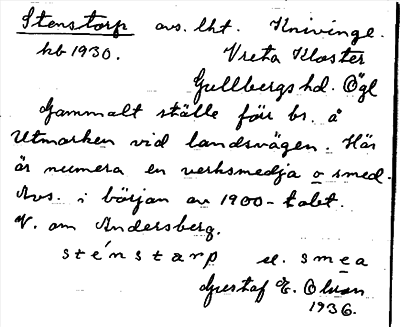 Stenstorp avs. lht. Knivinge.
kb 1930. Vreta Kloster
Gullbergs hd. Ögl
Gammalt ställe förr br. å
Utmarken vid landsvägen. Här
är numera en verksmedja o smed.
Avs. i början av 1900-talet.
V. om Andersberg.
sténstarp el. smea
Gustaf E. Olson
1936.